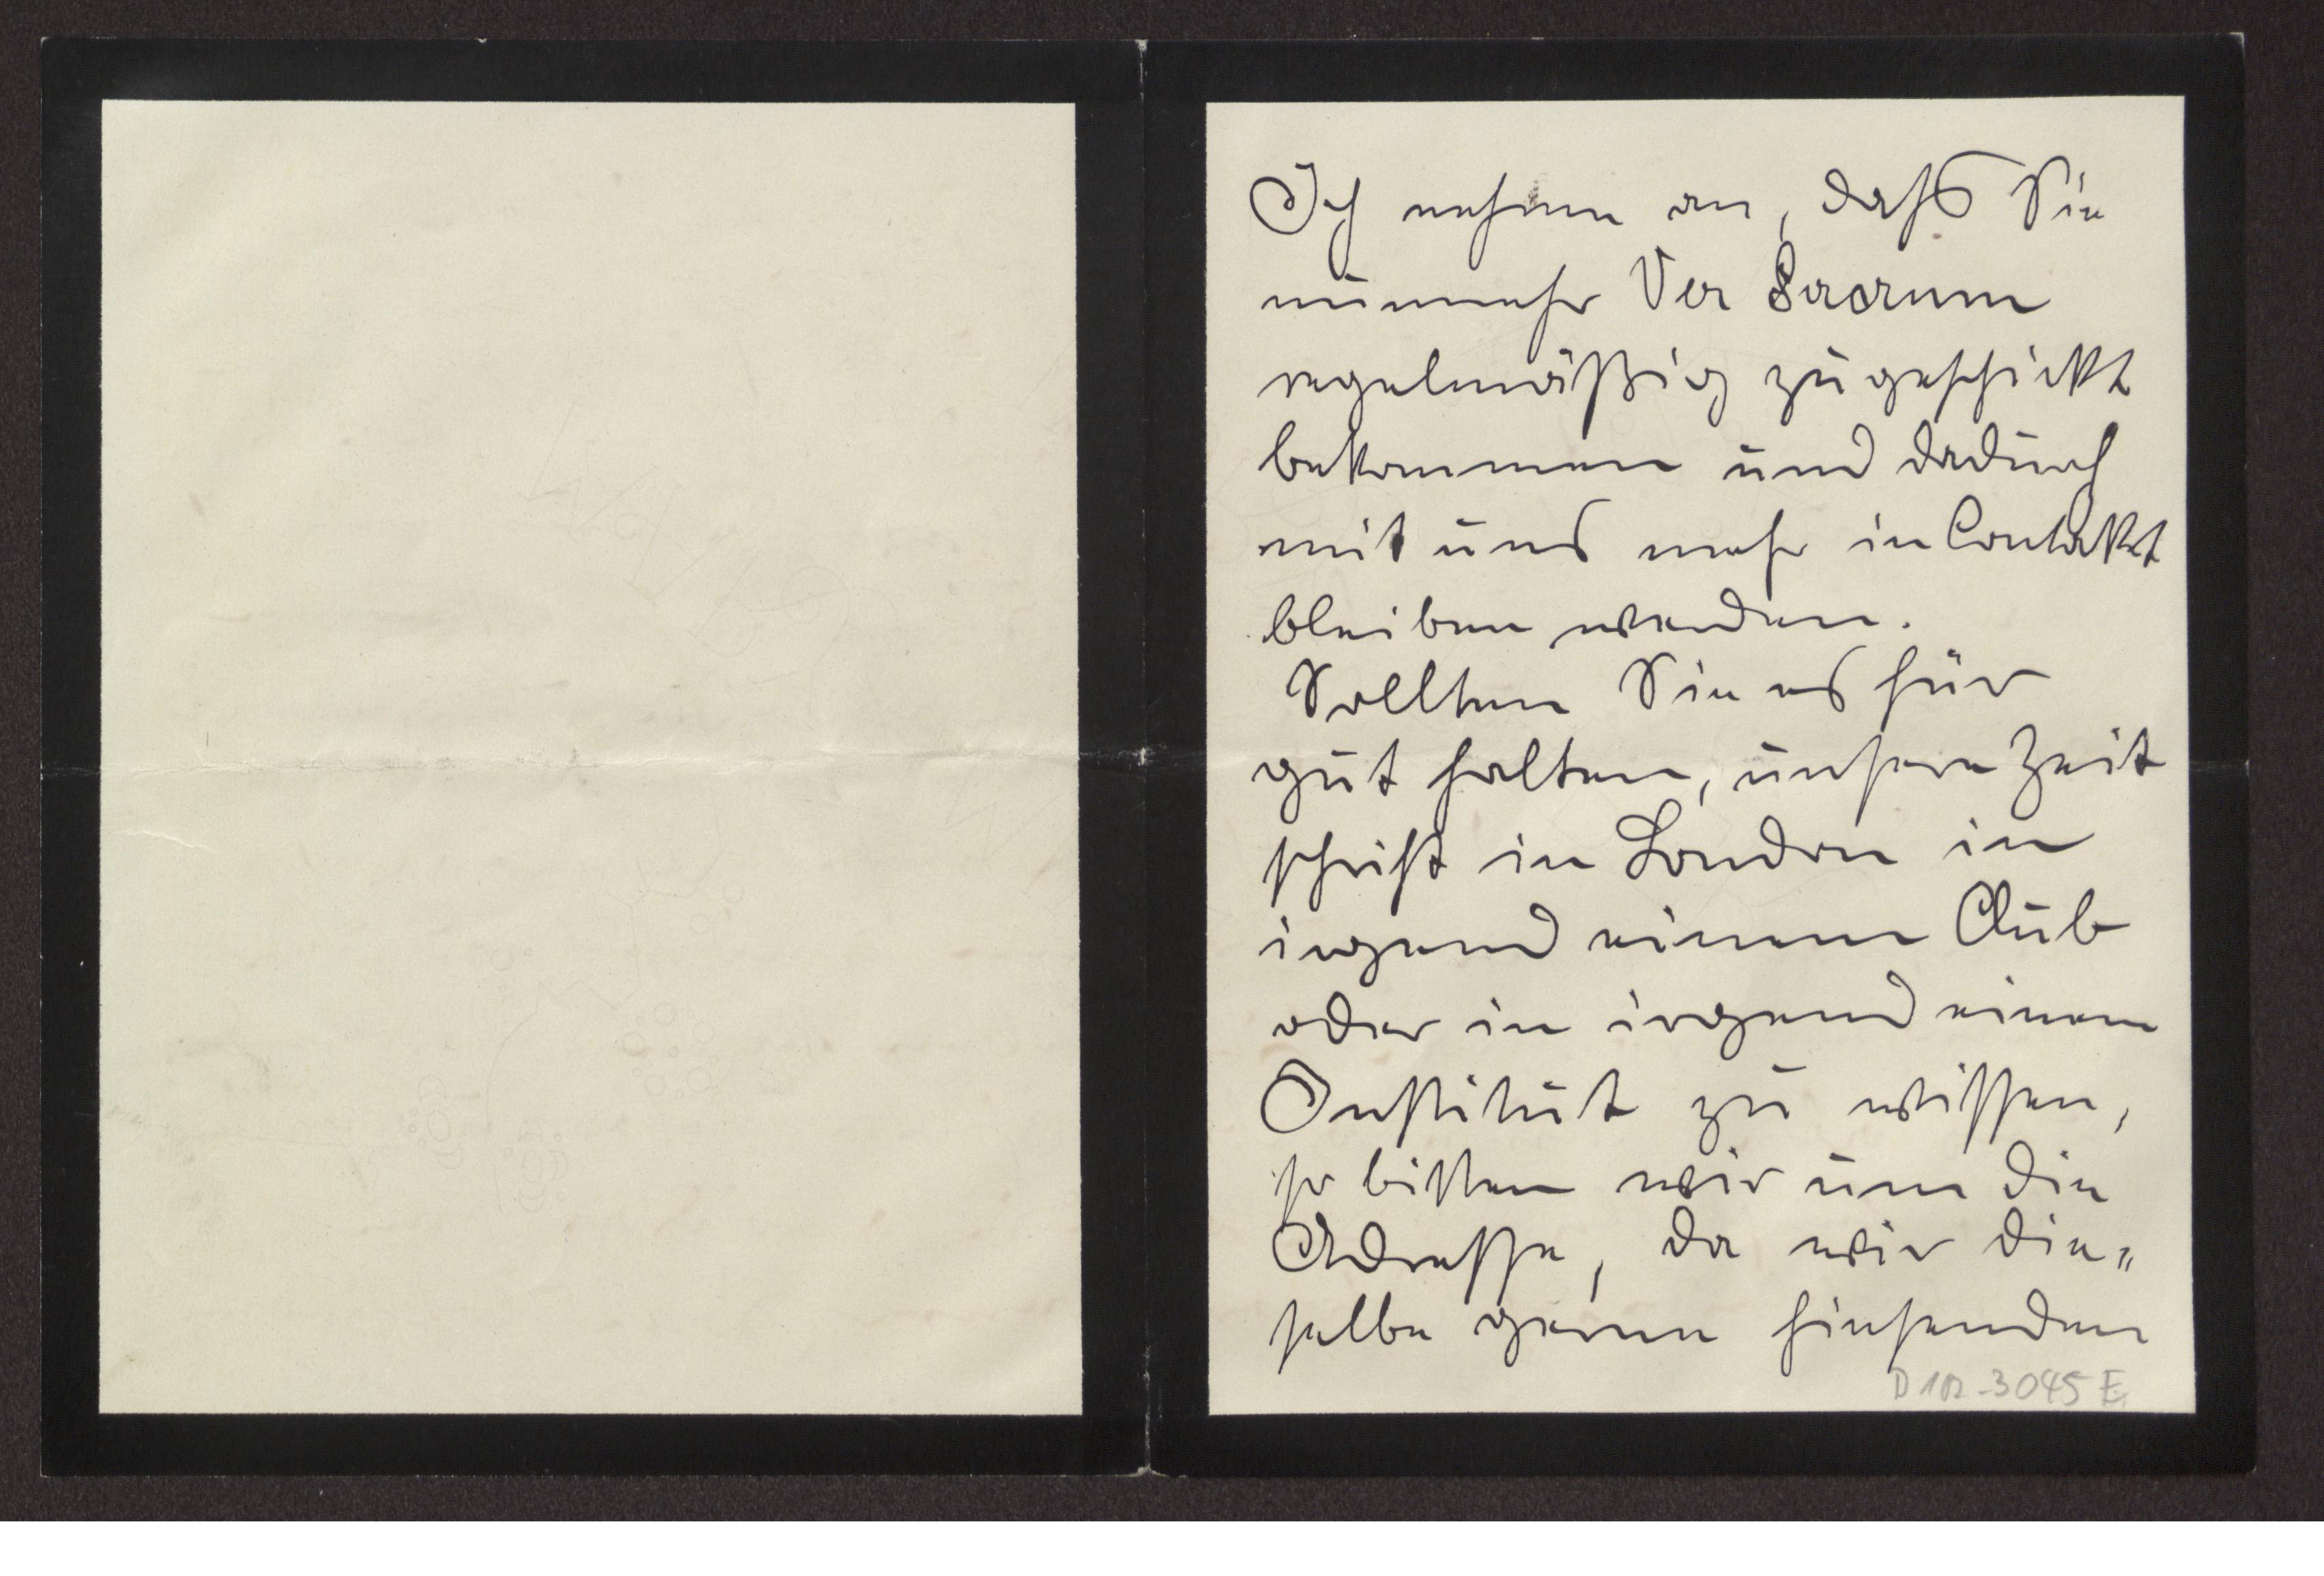 Ich nehme an, dass Sie
nunmehr Ver Sacrum
regelmäßig zugeschickt
bekommen und dadurch
mit uns mehr in Contakt
bleiben werden.
Sollten Sie es für
gut halten, unsere Zeit
schrift in London in
irgend einem Club
oder in irgend einem
Institut zu wissen,
so bitten wir um die
Adresse, da wir die„
selbe gerne hinsenden
D 102-3045 E